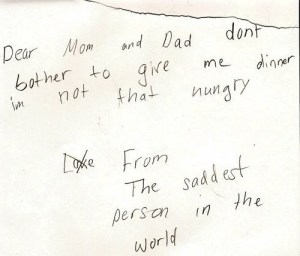 Dear Mom and Dad dont
bother to give me dinner
im not that hungry
Love From
The saddest
person in the
world